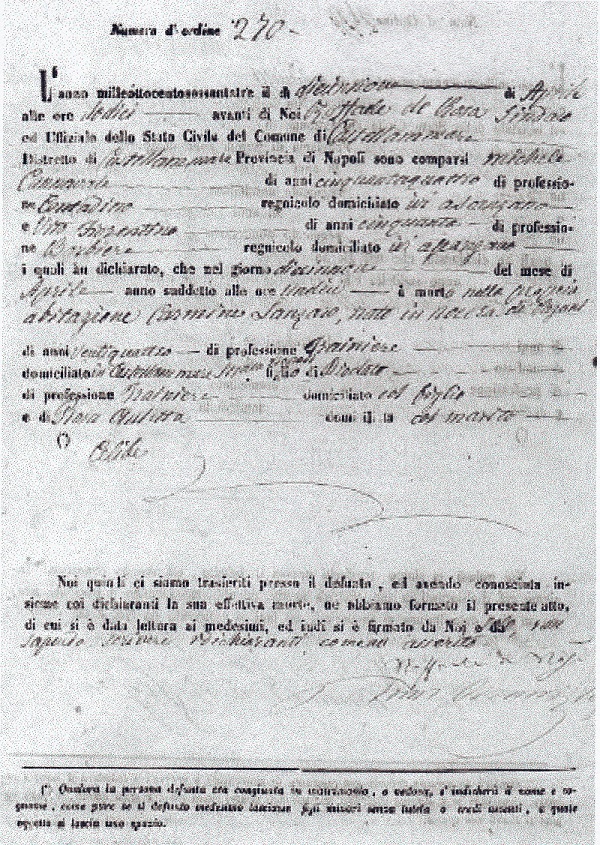 Numero d'ordine 270
L'anno milleottocentosessantatre il dì diecinnove di Aprile
alle ore sedici avanti di Noi Raffaele de Rosa Sindaco
ed Uffiziale dello Stato Civile del Comune di Castellammare
Distretto di Castellammare Provincia di Napoli sono comparsi Michele
di anni cinquantaquattro di professio-
ne Contadino regnicolo domiciliato in
e Vito Sorrentino di anni cinquanta di professio-
ne Barbiere regnicolo domiciliato in
i quali àn dichiarato, che nel giorno diecinnove del mese di
Aprile anno suddetto alle ore undici è morto nella propria
abitazione Carmine Lanzaro, nato in Nocera de Pagani
di anni ventiquattro di professione Trainiere
domiciliato in Castellammare figlio di
di professione Trainiere domiciliato col figlio
e di Rosa domiciliata col marito
(*) Celibe
Noi quindi ci siamo trasferiti presso il defunto, ed avendo conosciuta in-
sieme coi dichiaranti la sua effettiva morte, ne abbiamo formato il presente atto,
di cui si è data lettura ai medesimi, ed indi si è firmato da Noi non
sapendo scrivere i dichiaranti come àn asserito
Raffaele de Rosa
(*) Qualora la persona defunta era congiunta in matrimonio, o vedova, s'indicherà il nome e co-
gnome, come pure se il defunto medesimo lasciasse figli minori senza tutela o eredi assenti, e quale
oggetto si lascia uno spazio.